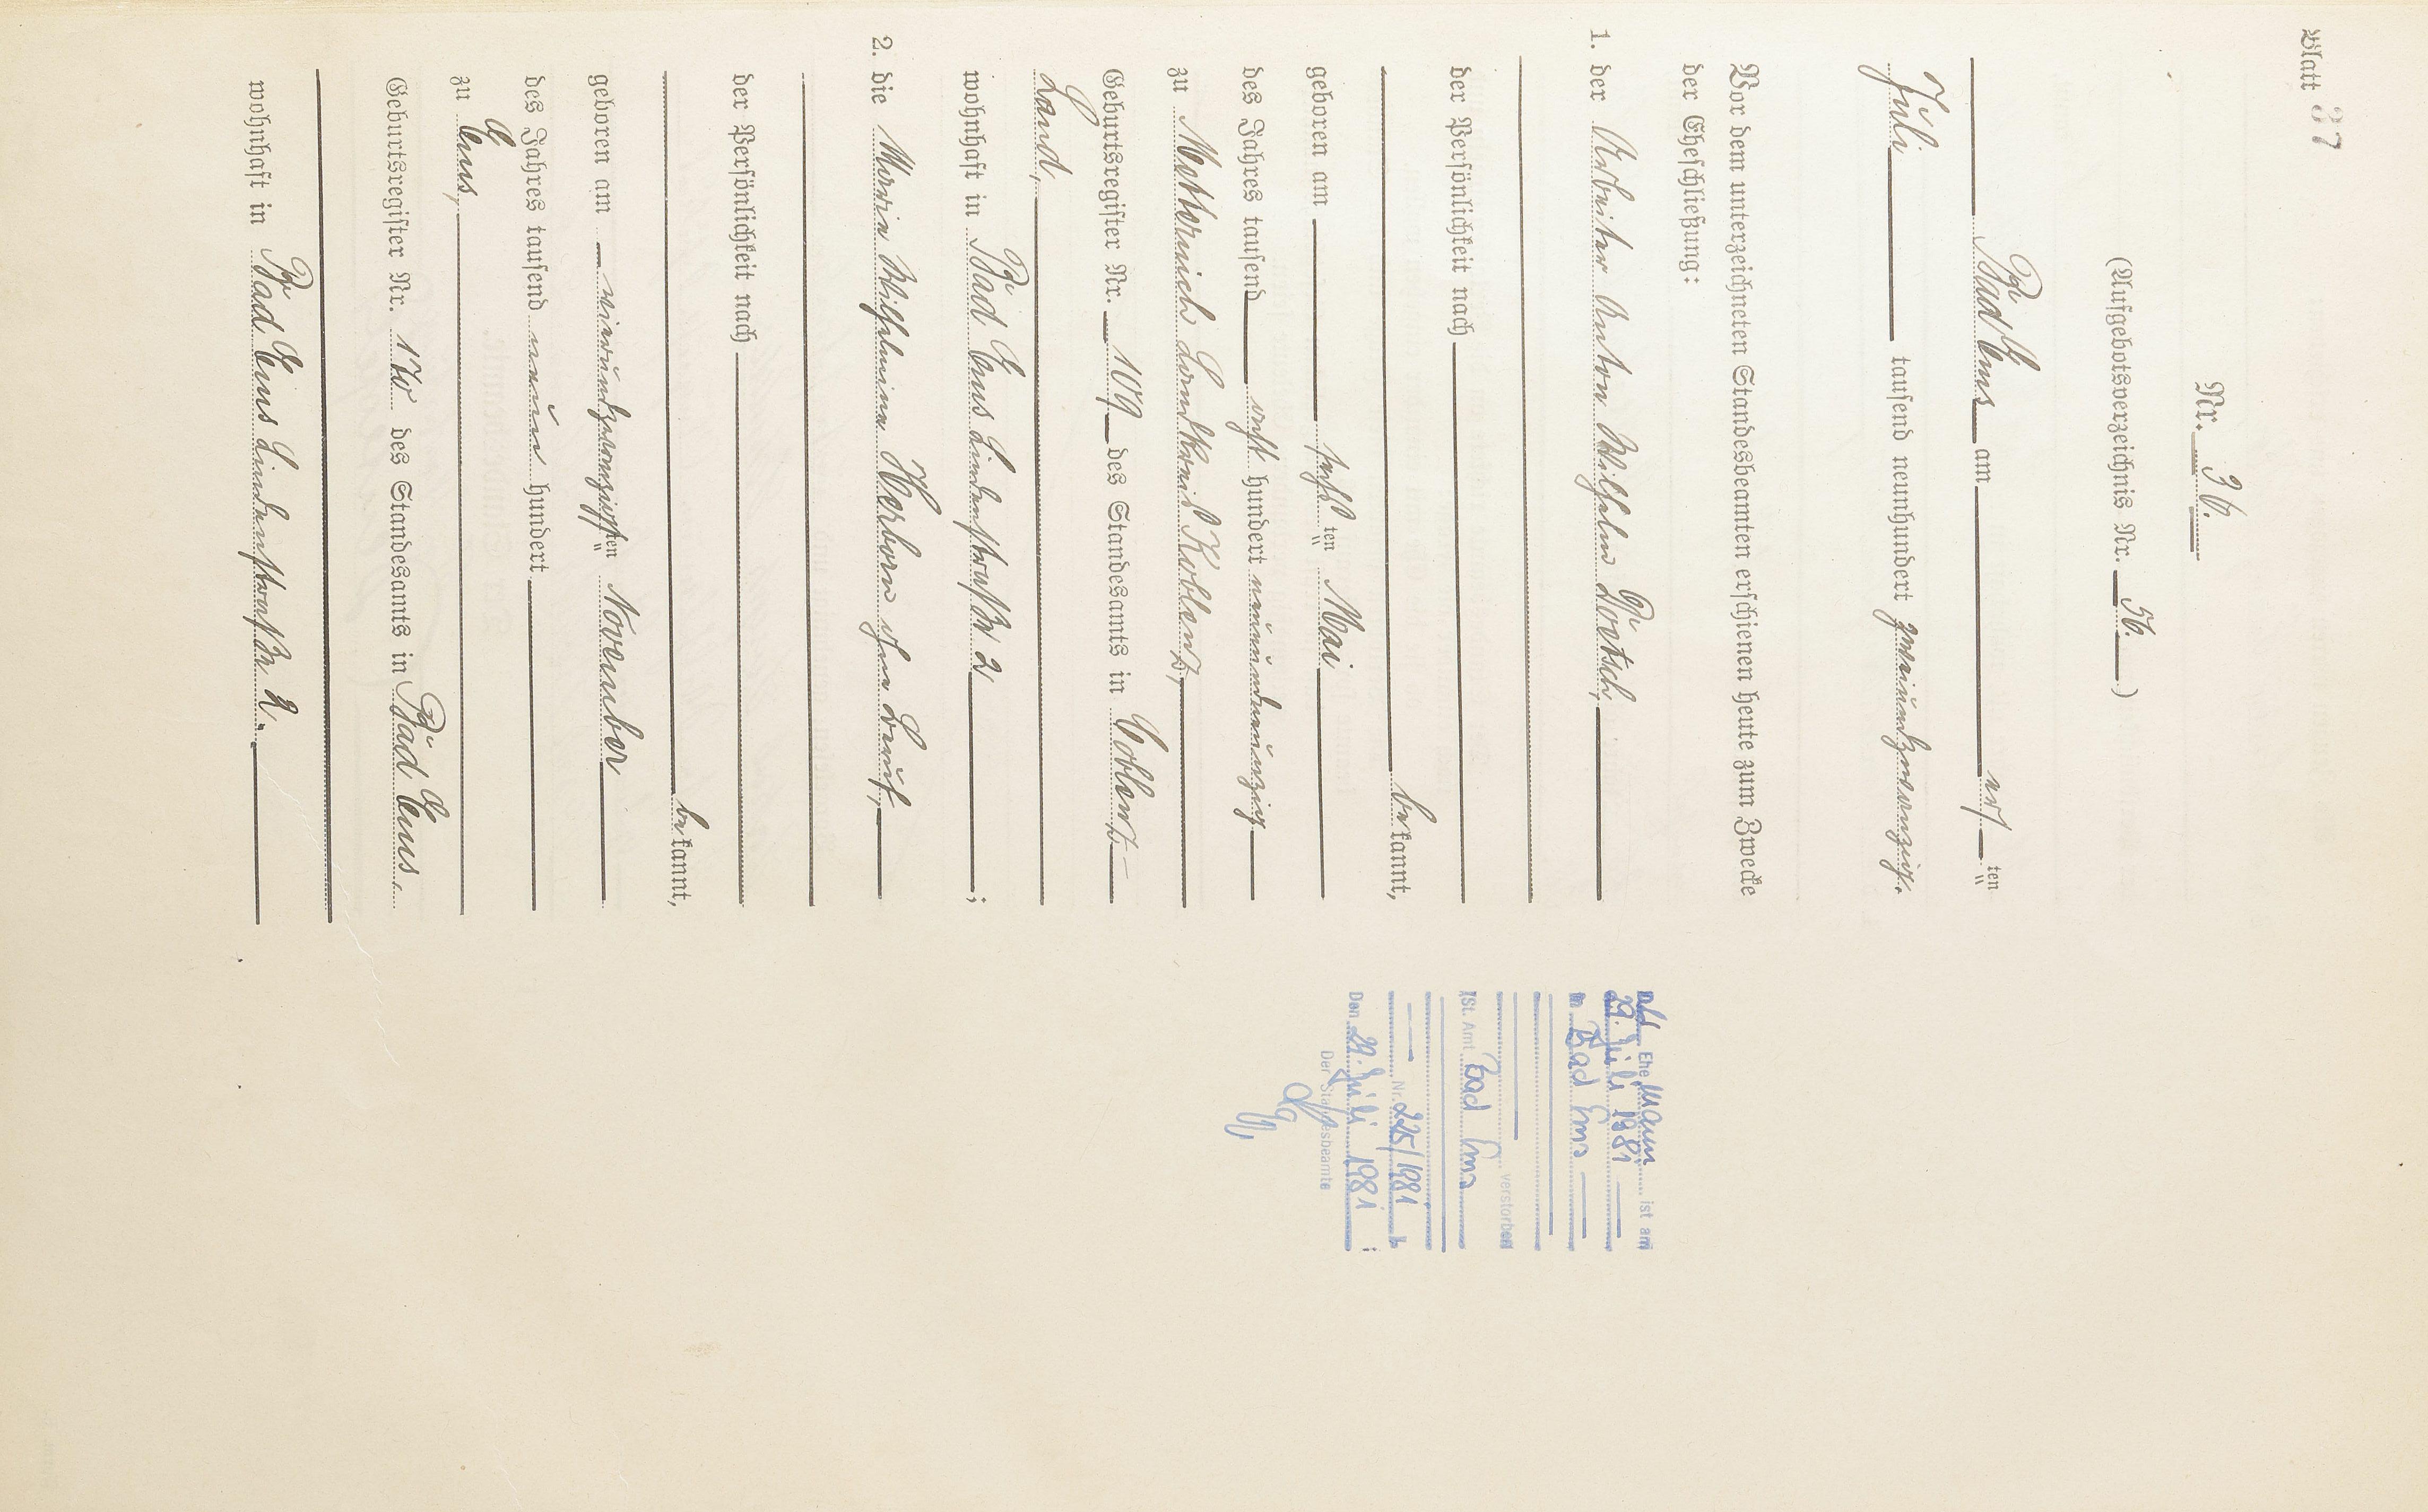 Blatt 37
Nr. 36.
(Aufgebotsverzeichnis Nr. 56.)
Bad Ems am ten
Juli tausend neunhundert zweiundzwanzig.
Vor dem unterzeichneten Standesbeamten erschienen heute zum Zwecke
der Eheschließung:
1. der Arbeiter Anton Wilhelm Dötsch,
der Persönlichkeit nach
be kannt,
geboren am sechs ten Mai
des Jahres tausend acht hundert neunundneunzig
zu Metternich Landkreis Koblenz,
Geburtsregister Nr. 109 des Standesamts in Coblenz-
Land,
wohnhaft in Bad Ems Lindenstraße 2 ;
2. die Maria Wilhelmina Herborn
der Persönlichkeit nach
be kannt,
geboren am vierundzwanzigsten November
des Jahres tausend neun hundert
zu Ems,
Geburtsregister Nr. 170 des Standesamts in Bad Ems,
wohnhaft in Bad Ems Lindenstraße 2.
Der Ehe mann ist am
29. Juli 1981
in Bad Ems
verstorben
(St. Amt Bad Ems
Nr. 225/1981
Den 29. Juli 1981
Der Standesbeamte